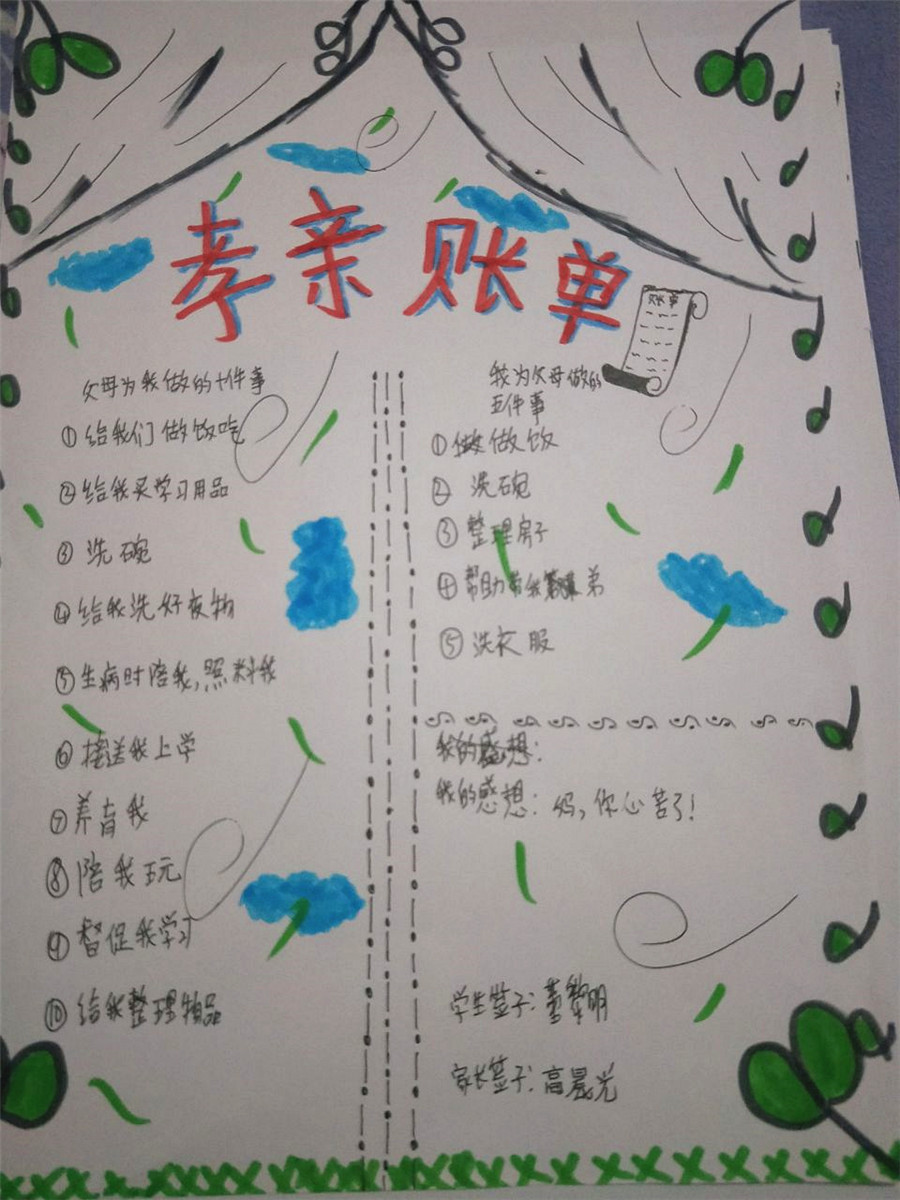 孝亲账单
账单
父母为我做的十件事
①给我们做饭吃
②给我买学习用品
③洗碗
④给我洗好衣物
⑤生病时陪我,照料我
⑥接送我上学
⑦养育我
⑧陪我玩
⑨督促我学习
⑩给我整理物品
我为父母做的
五件事
①做饭
②洗碗
③整理房子
④帮助 弟
⑤洗衣服
我的感想:
我的感想:妈,你心苦了!
学生签子:董黎明
家长签子:高晨光